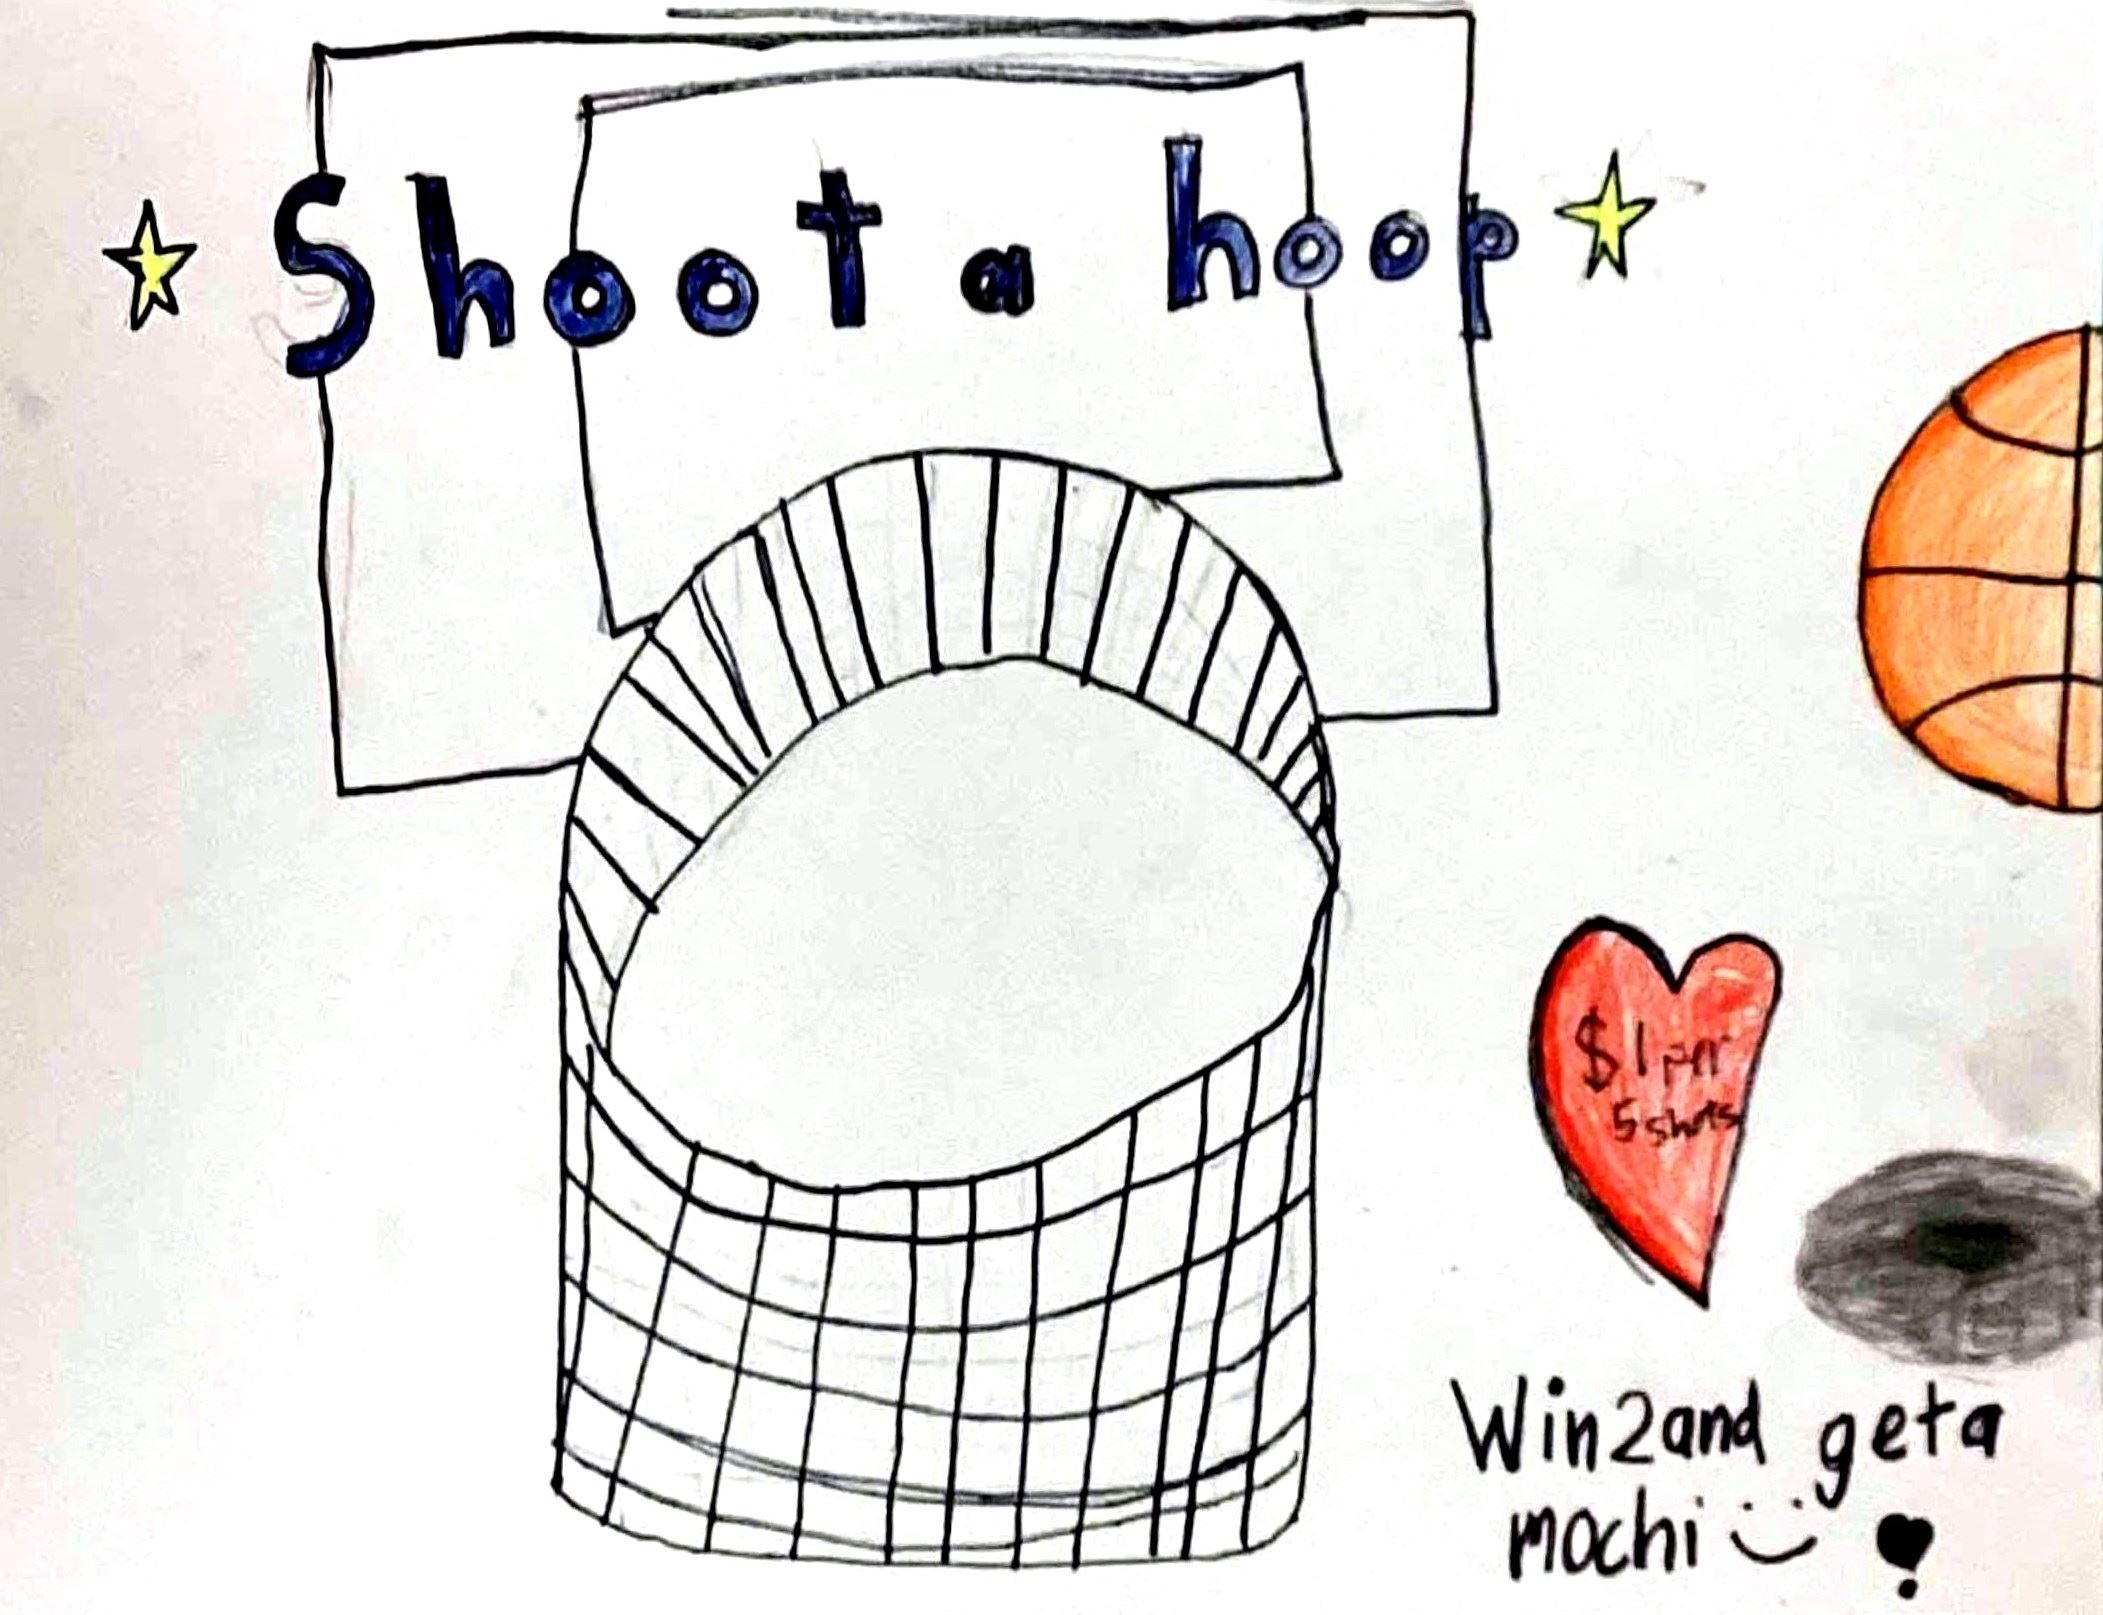 Shoot a hoop
$1 per
5 shots
Win 2 and get a
mochi